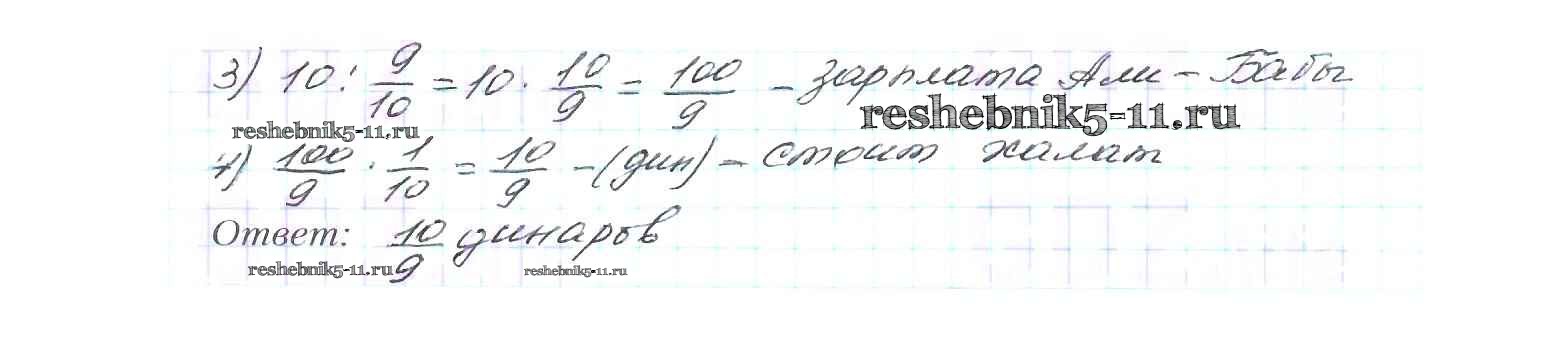 3) 10 : 9/10 = 10 · 10/9 = 100/9 - зарплата Али - Бабы
reshebnik5-11.ru
reshebnik5-11.ru
4) 100/9 · 1/10 = 10/9 - (дин) - стоит халат
Ответ: 10/9 динаров
reshebnik5-11.ru
reshebnik5-11.ru